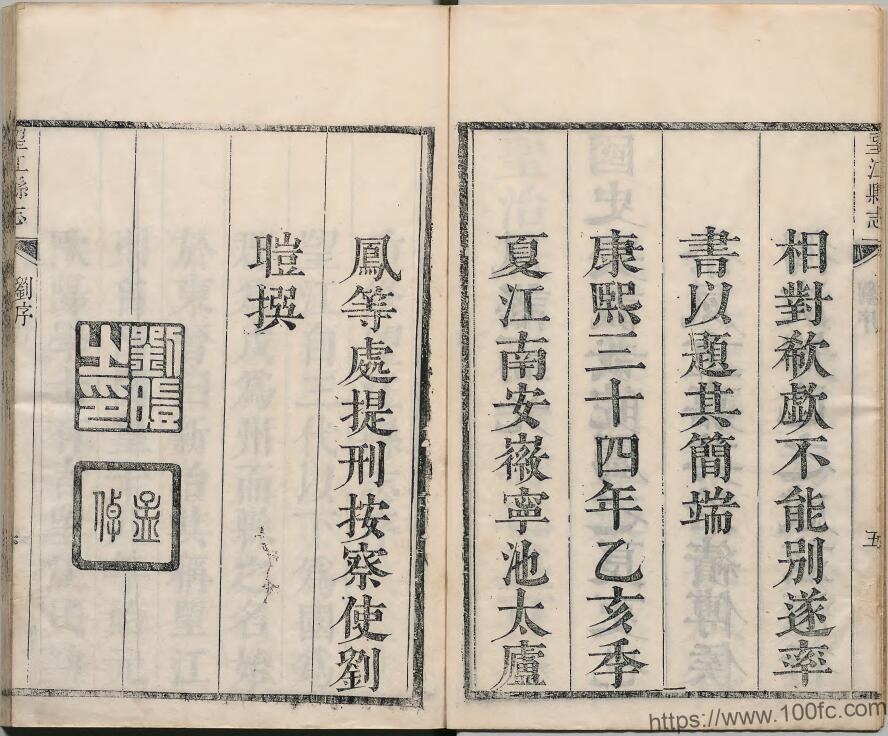 望江縣志
劉序
五
相對欷歔不能别遂率
書以題其簡端
康熙三十四年乙亥季
夏江南安嶶寧池太廬
鳳等處提刑按察使劉
暟撰
劉暟之印
望江縣志
劉序
https://www.100fc.com